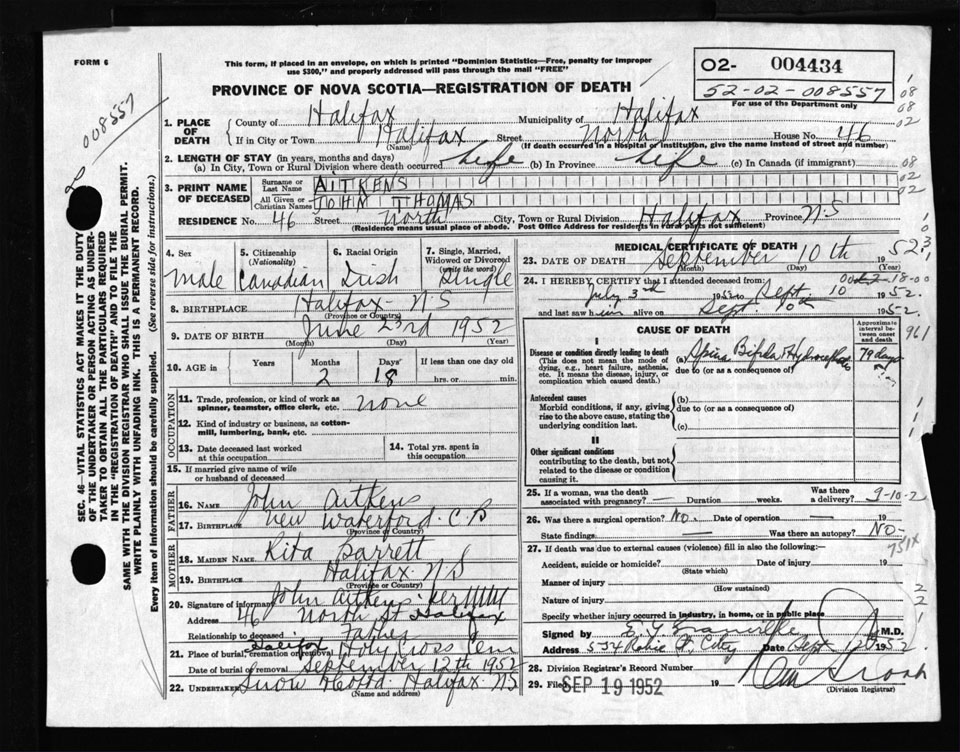 FORM 6
This form, if placed in an envelope, on which is printed "Dominion Statistics—Free, penalty for improper
use $300," and properly addressed will pass through the mail "FREE"
PROVINCE OF NOVA SCOTIA—REGISTRATION OF DEATH
O2- 004434
52-02-008557
For use of the Department only
008557
SEC. 46—VITAL STATISTICS ACT MAKES IT THE DUTY
OF THE UNDERTAKER OR PERSON ACTING AS UNDER-
TAKER TO OBTAIN ALL THE PARTICULARS REQUIRED
IN THE "REGISTRATION OF DEATH" AND TO FILE THE
SAME WITH THE DIVISION REGISTRAR WHO SHALL ISSUE THE BURIAL PERMIT.
WRITE PLAINLY WITH UNFADING INK. THIS IS A PERMANENT RECORD.
Every item of information should be carefully supplied. (See reverse side for instructions.)
1. PLACE OF DEATH
County of Halifax Municipality of Halifax
If in City or Town Halifax Street North House No. 46
(Name) (If death occurred in Hospital or Institution, give the name instead of street and number)
2. LENGTH OF STAY (in years, months and days)
(a) In City, Town or Rural Division where death occurred Life (b) In Province Life (c) In Canada (if immigrant)
3. PRINT NAME OF DECEASED
Surname or Last Name AITKENS
All Given or Christian Names JOHN THOMAS
RESIDENCE No. 46 Street North City, Town or Rural Division Halifax Province N.S
(Residence means usual place of abode. Post Office Address for residents in rural parts not sufficient)
4. Sex
male
5. Citizenship (Nationality)
Canadian
6. Racial Origin
Irish
7. Single, Married, Widowed or Divorced (write the word)
Single
8. BIRTHPLACE Halifax - N.S
(Province or Country)
9. DATE OF BIRTH June 23rd 1952
(Month) (Day) (Year)
10. AGE in Years Months 2 Days 18 If less than one day old hrs. or min.
OCCUPATION
11. Trade, profession, or kind of work as spinner, teamster, office clerk, etc. none
12. Kind of industry or business, as cotton-mill, lumbering, bank, etc.
13. Date deceased last worked at this occupation
14. Total yrs. spent in this occupation
15. If married give name of wife or husband of deceased
FATHER
16. NAME John Aitkens
17. BIRTHPLACE New Waterford. C.B
(Province or Country)
MOTHER
18. MAIDEN NAME Rita Barrett
19. BIRTHPLACE Halifax. N S
(Province or Country)
20. Signature of informant John Aitkens
Address 46 North St Halifax
Relationship to deceased Father
21. Place of burial, cremation or removal Halifax Holy Cross Cem
Date of burial or removal September 12th 1952
22. UNDERTAKER Snow & Co Ltd. Halifax. NS
(Name and address)
MEDICAL CERTIFICATE OF DEATH
23. DATE OF DEATH September 10th 1952
(Month) (Day) (Year)
24. I HEREBY CERTIFY that I attended deceased from
July 3rd 1952 to Sept 10 1952
and last saw him alive on Sept. 10th 1952.
CAUSE OF DEATH
Approximate interval between onset and death
I
Disease or condition directly leading to death
(This does not mean the mode of dying, e.g., heart failure, asthenia, etc. It means the disease, injury, or complication which caused death.)
(a) Spina Bifida & Hydrocephalus 79 days
due to (or as a consequence of)
Antecedent causes
Morbid conditions, if any, giving rise to the above cause, stating the underlying condition last.
(b)
due to (or as a consequence of)
(c)
II
Other significant conditions
contributing to the death, but not related to the disease or condition causing it.
25. If a woman, was the death associated with pregnancy? — Duration weeks. Was there a delivery?
9-10-2
26. Was there a surgical operation? No. Date of operation — 19
State findings — Was there an autopsy? No-
751X
27. If death was due to external causes (violence) fill in also the following:—
Accident, suicide or homicide? Date of injury 19
(State which)
Manner of injury
(How sustained)
Nature of injury
Specify whether injury occurred in industry, in home, or in public place
Signed by M.D.
Address 534 Robie St. City Date Sept 1952
28. Division Registrar's Record Number
29. Filed SEP 19 1952 19
(Division Registrar)